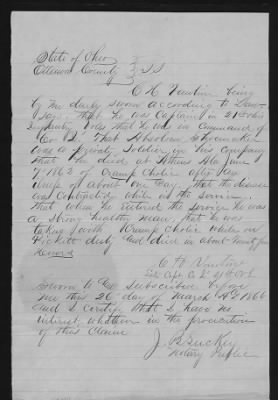 State of Ohio
Ottawa County } SS
being
by me duly sworn according to Law
Says that he was Captain in 21st Ohio
Infantry Vols that he was in Command of
Co "D." that Shoemaker
was a private Soldier in his Company
that he died at Athens Ala June
7" 1862 of Cramp Cholic after an
illness of about one day. That the disease
was Contracted while in the service.
That when he entered the service he was
a strong healthy man, that he was
taking with Cramp Cholic while on
Pickett duty and died in about Twenty four
Hours
Late Capt Co D 21 O V I
Sworn to & Subscribed before
me this 26 day of March AD 1866
and I certify that I have no
interest whatever in the prosecution
of this Claim
J. B. Luckey
Notary Public